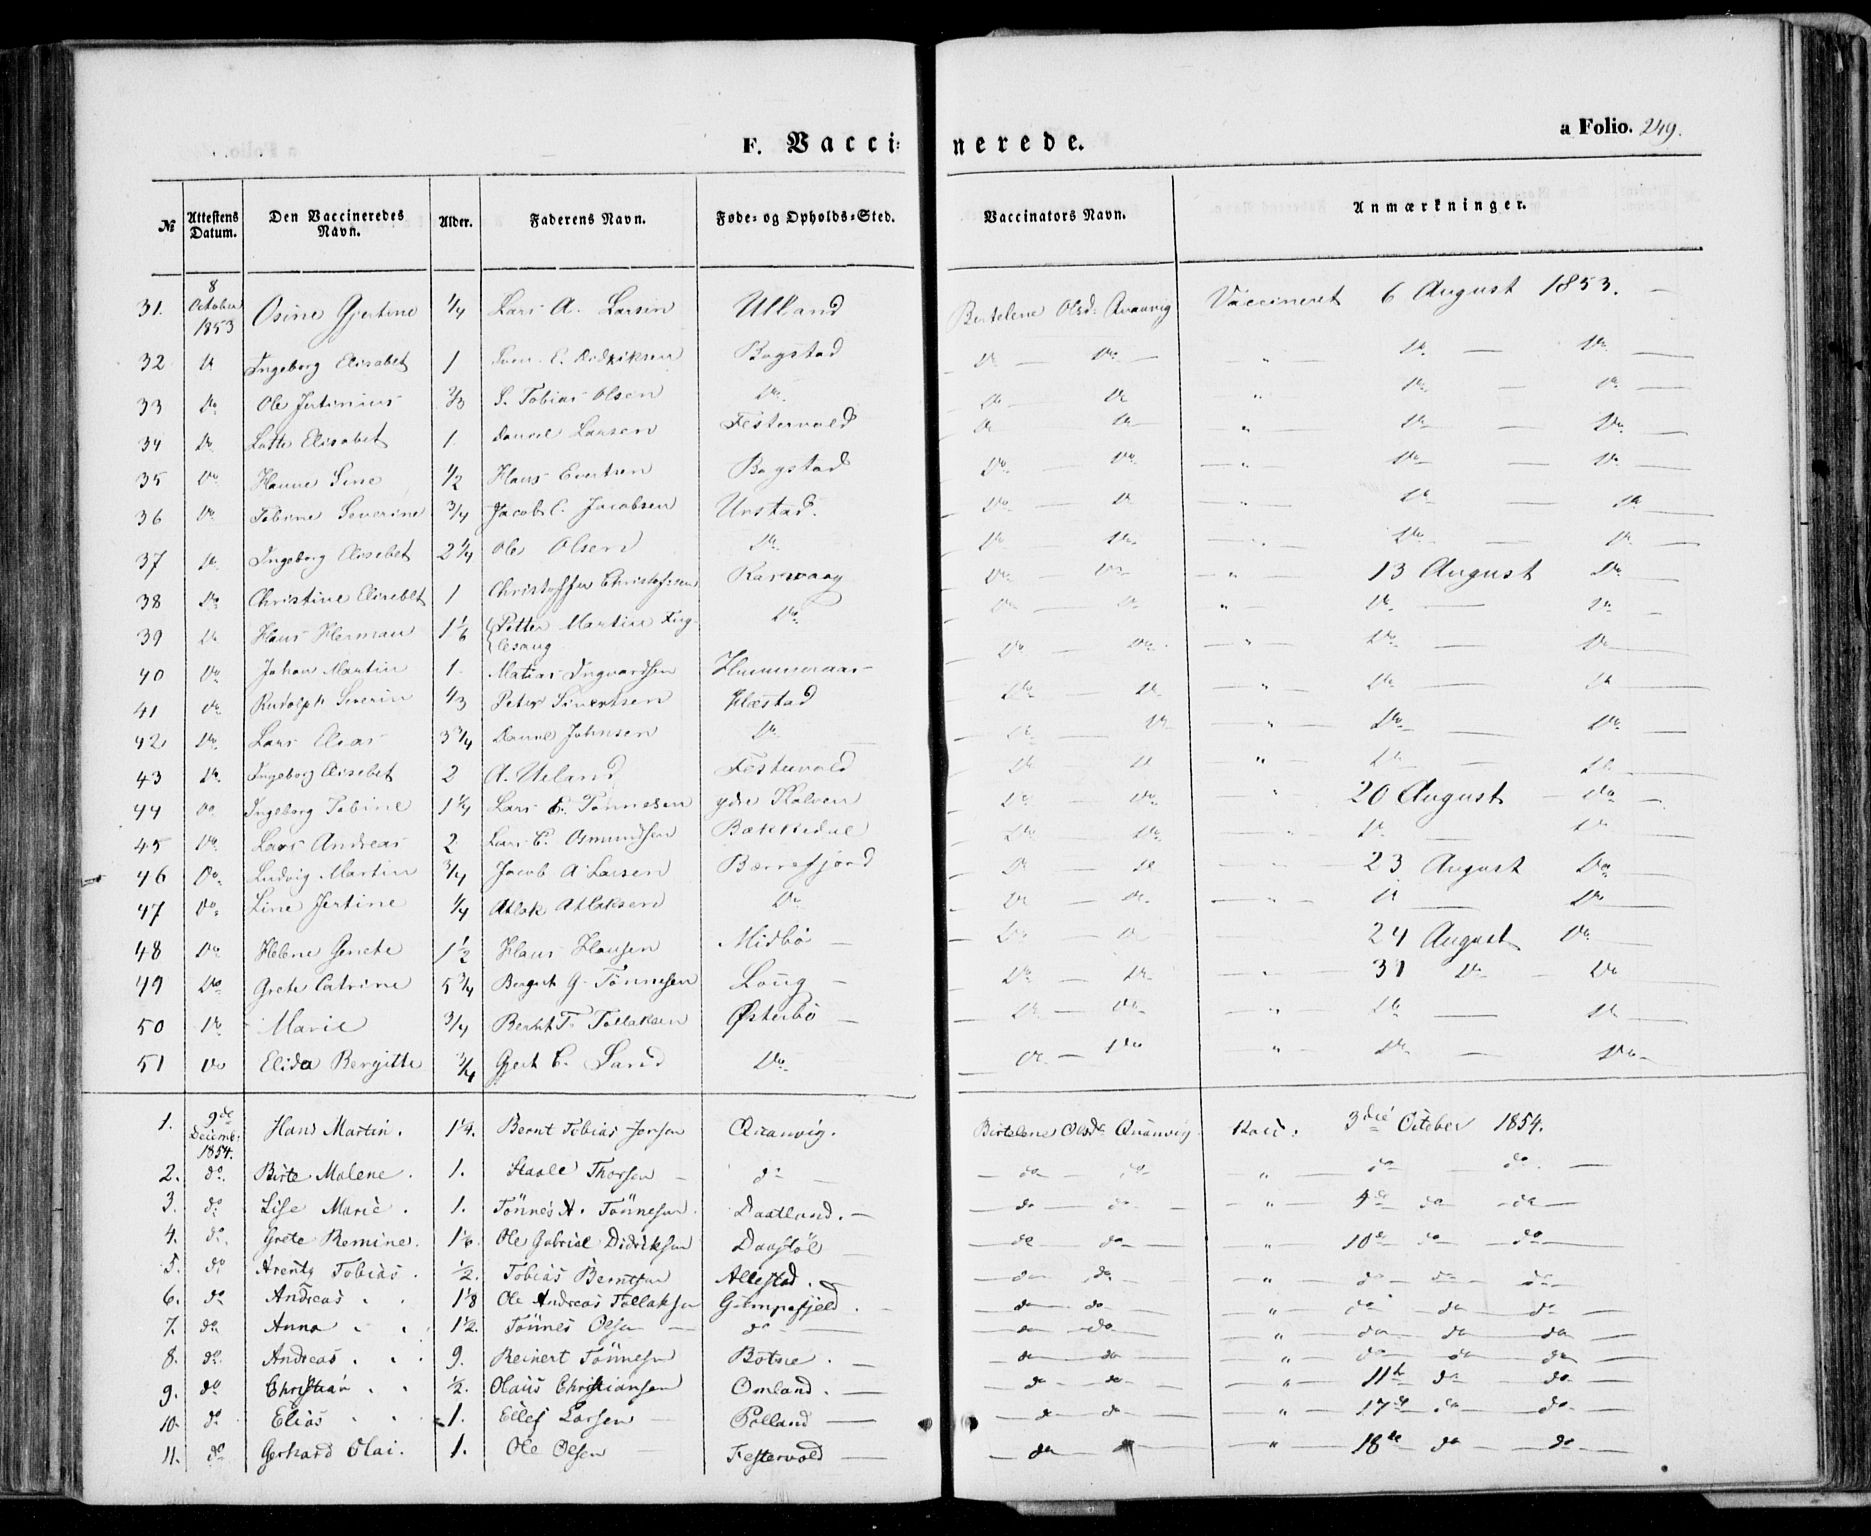 a Folio. 249.
F. Vaccinerede.
№ Attestens Datum. Den Vaccineredes Navn. Alder. Faderens Navn. Føde- og Opholds-Sted. Vaccinators Navn. Anmærkninger.
31. 8 October 1853 Osine Gjertine 1/4 Lars A. Larsen Ulland Bertelene Olsd. Qvanvig Vaccineret 6 August 1853. —
32 do Ingeborg Elisabet 1 Sven E. Didriksen Bogstad do — do — " do — do —
33 do Ole Jertinius 2/3 S. Tobias Olsen do do do " do — do —
34 do Lotte Elisabet 1 Daniel Larsen Festervold do do " do — do —
35 do Hanne Sine 1/2 Hans Evertsen Bogstad do — do — " do — do —
36 do Tobine Severine 3/4 Jacob C. Jacobsen Urstad. do — do — " do — do —
37 do Ingeborg Elisebet 2 1/4 Ole Olsen do do do — " do — do —
38 do Christine Elisebet 1 Christoffer Christofersen Rasvaag do do — " 13 August do —
39 do Hans Herman 1 1/6 Petter Martin Fuglesang do do — do " do — do —
40 do Johan Martin 1. Matias Ingvardsen Hummeraas do do " do — do —
41 do Rudolph Severin 1/3 Peter Sivertsen Hæstad do — do — " do — do —
42 do Lars Elias 3 3/4 Daniel Johnsen do do do — " do — do —
43 do Ingeborg Elisebet 2 A. Ueland Festervold do do — " do — do —
44 do Ingeborg Tobine 1 1/4 Lars E. Tønnesen ydre Kalven do — do — " 20 August — do —
45 do Lars Andreas 2 Lars E. Osmundsen Bækkedal do — do — " do — do —
46 do Ludvig Martin 3/4 Jacob A Larsen Børrefjord do — do — " 23 August do —
47 do Line Jertine 1/4 Atlak Atlaksen do do — do — " do — do —
48 do Helene Grete 1 1/2 Hans Hansen Midbø — do — do — 24 August do —
49 do Grete Catrine 5 3/4 Berget G. Tønnesen Loug — do — do — " 31 do — do
50 do Marie 3/4 Bernt T. Tollaksen Østebø — do — do — " do — do —
51 do Elida Bergitte 3/4 Gjert C. Sand do do — do " do — do —
1. 9de Decemb: 1854. Hans Martin. 1 1/4. Bernt Tobias Jonsen Qvanvig. Bertelene Olsdr Qvanvig Vacc: 3die October 1854.
2. do Birte Malene. 1. Staale Thorsen — do — — do — do " do — do —
3. do Lise Marie. 1. Tönnes A. Tönnesen. Daatland. — — do — do — — " — 4de do — do —
4. do Grete Remine. 1 1/6. Ole Gabriel Didriksen Daastöl — — do — do — — " — 10de do — do —
5. do Arents Tobias. 1/2. Tobias Berntsen Allestad. — — do — do — — " — do — do — do —
6. do Andreas. 1 1/8 Ole Andreas Tollaksen Gumpefjeld. — — do — do — — " — do — do — do —
7. do Anna 1 1/2. Tönnes Olsen — do — — do — do — — " — do — do — do —
8. do Andreas. 9. Reinert Tönnesen Botne. — — do — do — — " — do — do — do —
9. do Christian 1/2. Olaus Christiansen Omland. — — do — do — — " — 11te do — do —
10. do Elias 1. Eilef Larsen — Polland — — do — do — — " — 17de do — do —
11. do Gerhard Olai. 1. Ole Olsen — Festervold — — do — " — " — 18de do — do —